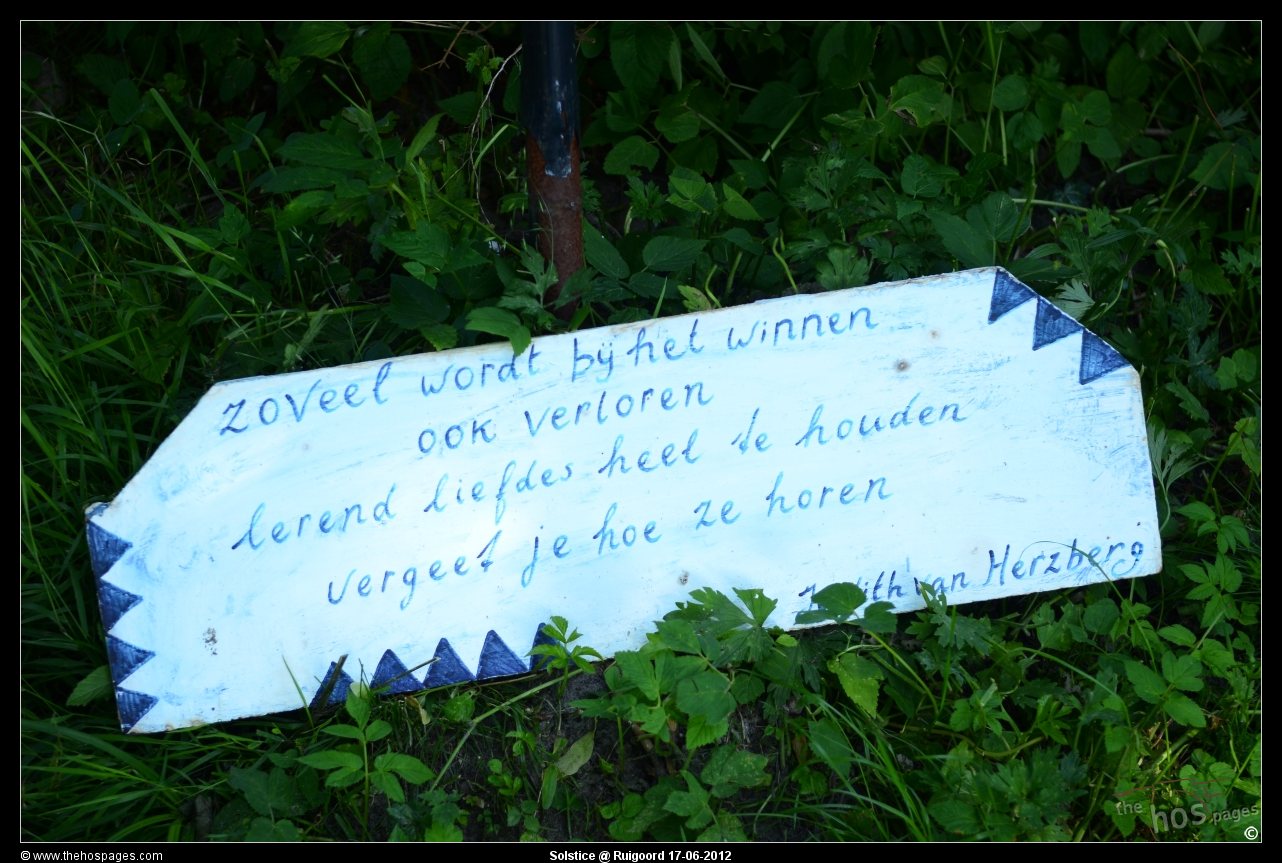 zoveel wordt bij het winnen
ook verloren
lerend liefdes heel te houden
vergeet je hoe ze horen
van Herzberg
the hos pages
©
© www.thehospages.com
Solstice @ Ruigoord 17-06-2012